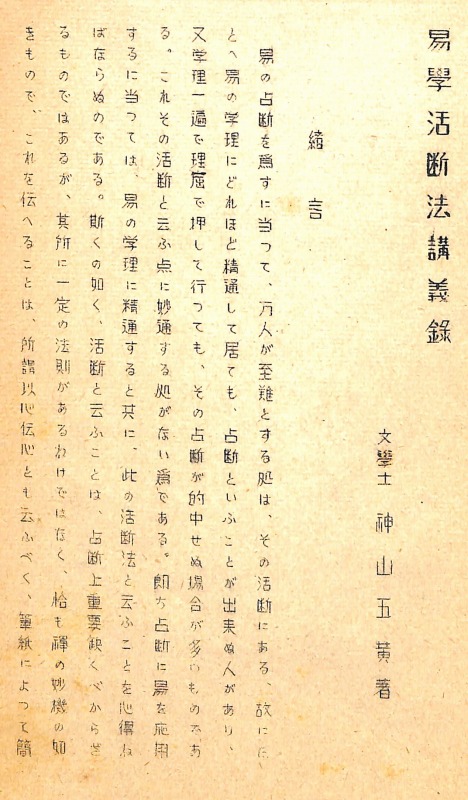 易學活断法講義錄
文學士 神山五黃著
緒言
易の占断を爲すに当つて、万人が至難とする処は、その活断にある、故に
とへ易の学理にどれほど精通して居ても、占断といふことが出来ぬ人があり、
又学理一遍で理窟で押して行つても、その占断が的中せぬ場合が多いものであ
る。これその活断と云ふ点に妙通する処がない爲である。卽ち占断に易を応用
するに当つては、易の学理に精通すると共に、此の活断法と云ふことを心得ね
ばならぬのである。斯くの如く、活断と云ふことは、占断上重要缺くべからざ
るものではあるが、其所に一定の法則があるわけではなく、恰も禪の妙機の如
きもので、これを伝へることは、所謂以心伝心とも云ふべく、筆紙によつて簡